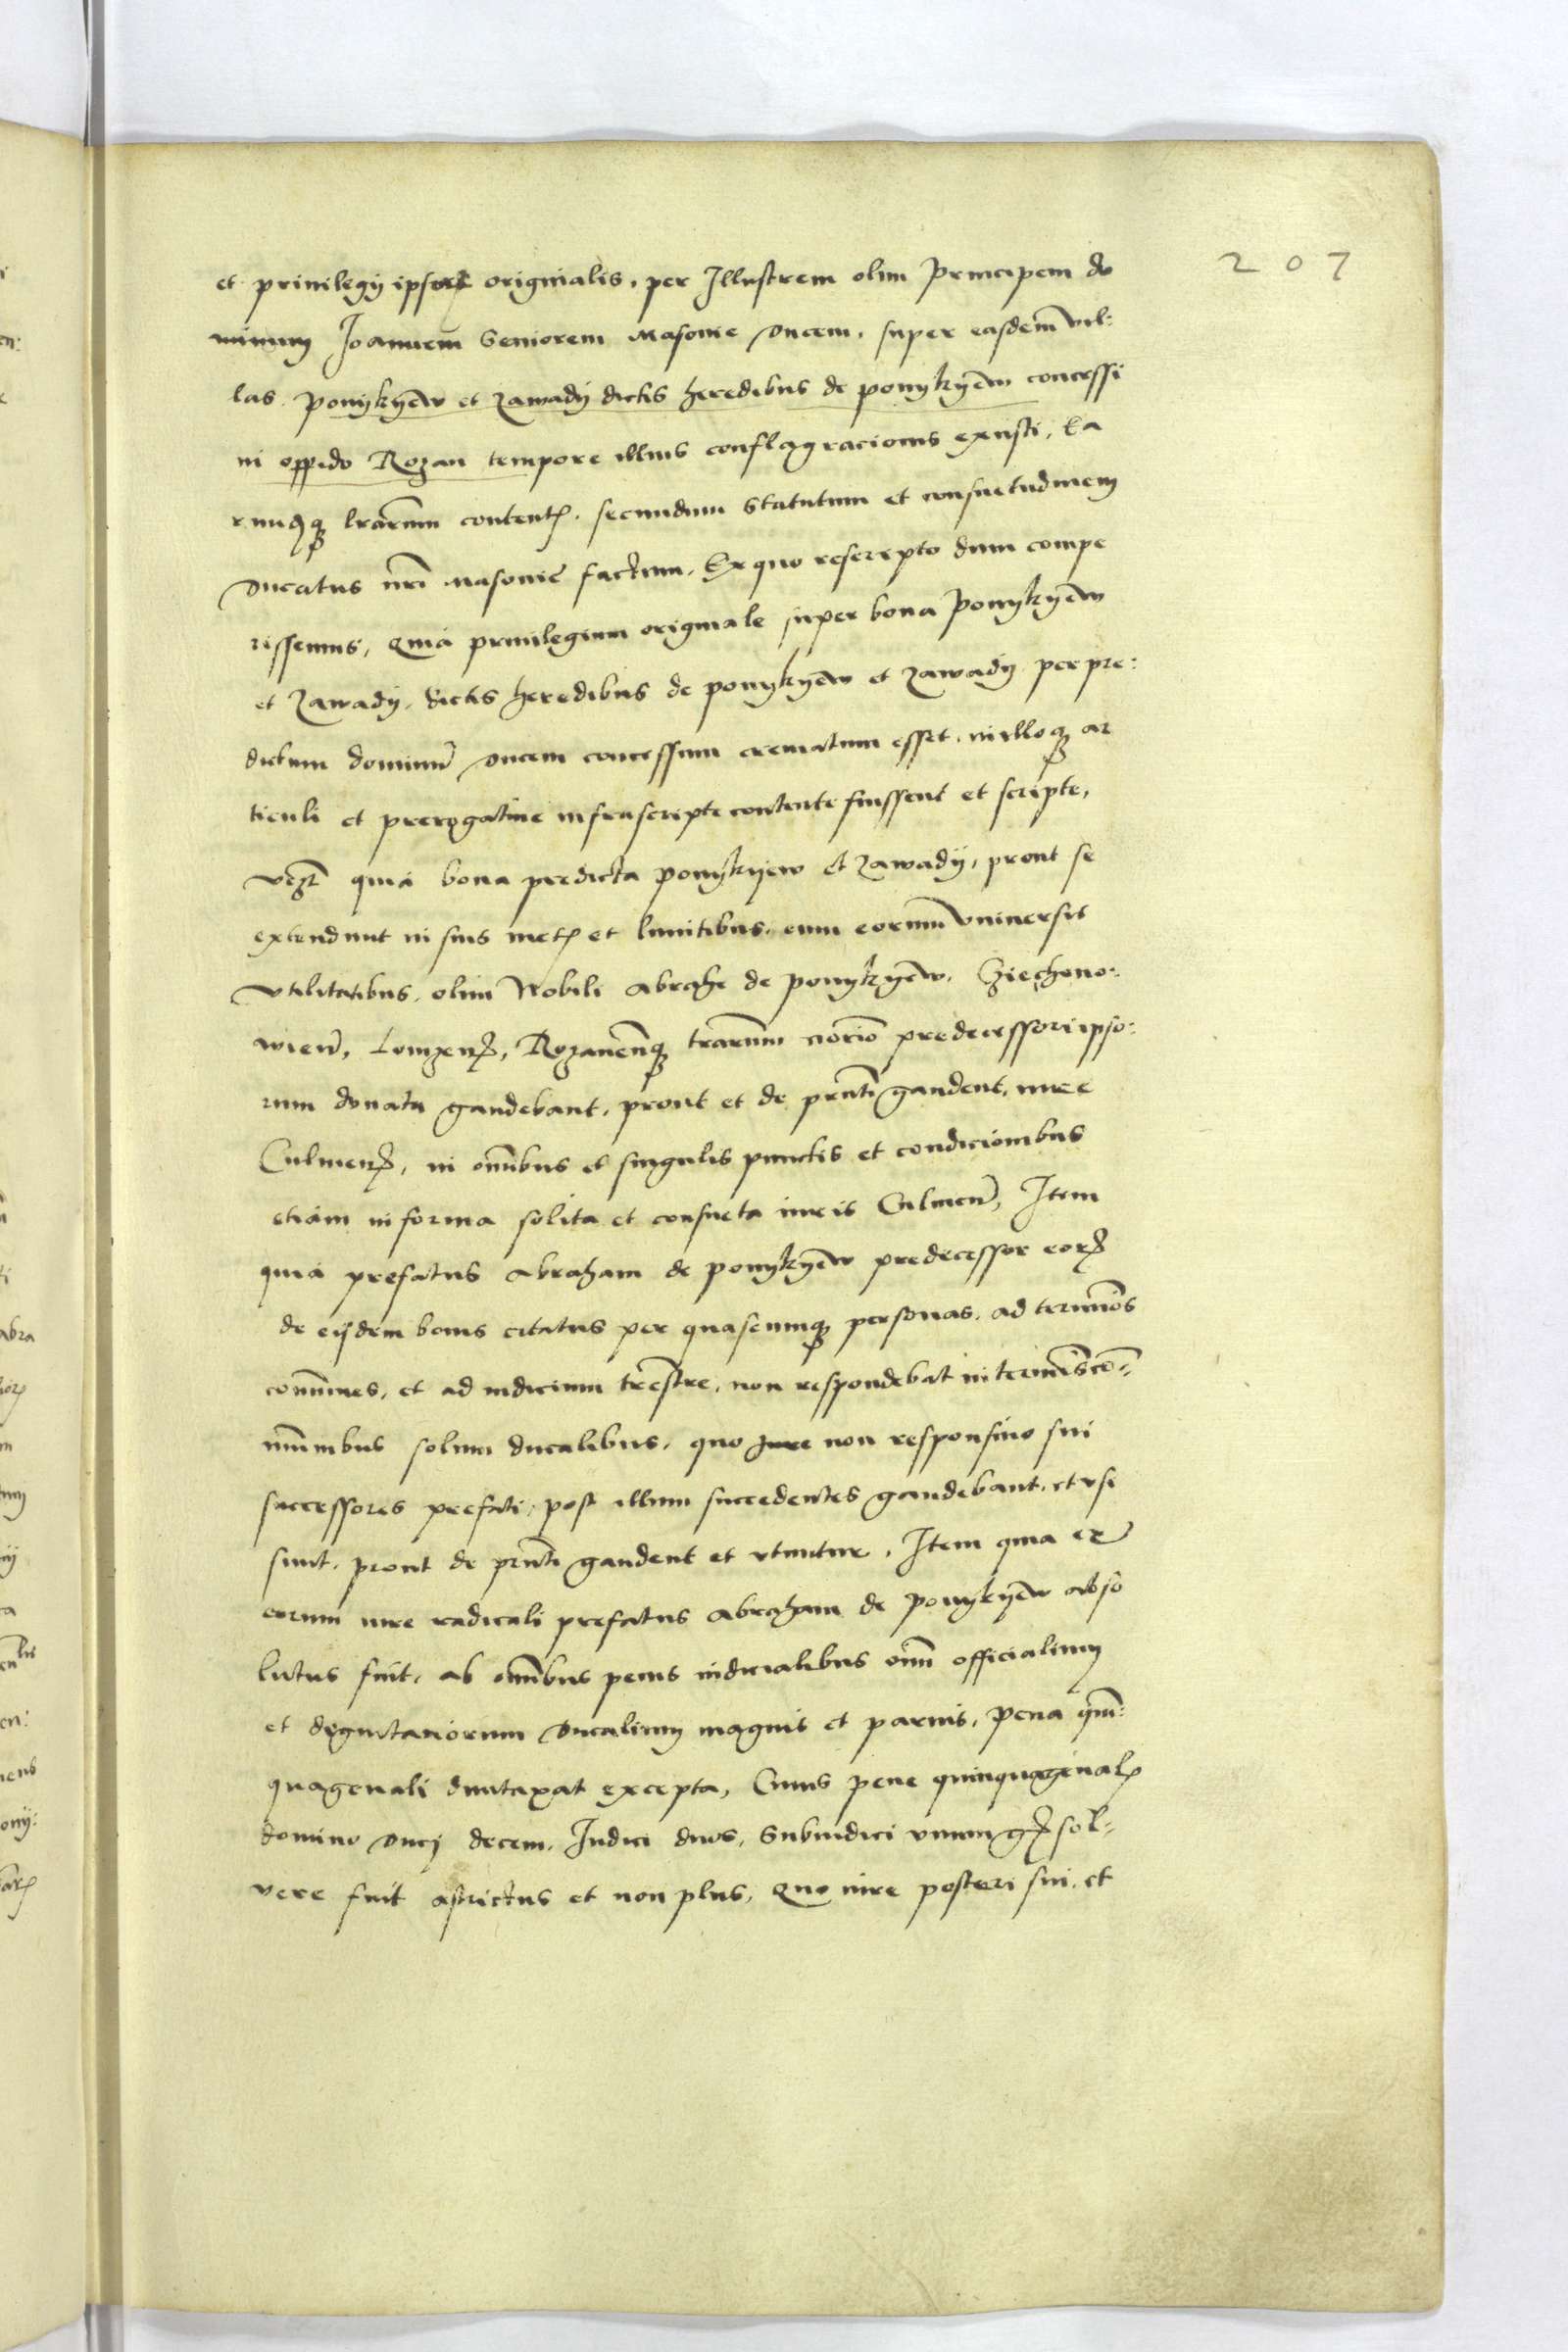 207
et priuilegÿ ipsorꝝ originalis, per Illustrem olim Principem do
minum Joannem Seniorem Masouie Ducem, super easdem̄ vil:
las Ponÿkÿēw et Zawadÿ dictis heredibus de Ponykÿēw concessi
in oppido Rozan tempore illius conflagracionis exusti, Ea
rumqꝫ lrārum contentꝭ, secundum Statutum et consuetudinem
Ducatus nrī Masouie factum. Ex quo rescripto dum compe
rissemus, Quia priuilegium originale super bona Ponykyēw
et Zawadÿ, dictis heredibus de Ponykyēw et Zawadÿ per pre:
dictum dominū Ducem concessum crematum esset, in illoqꝫ ar
ticuli et prerogatiue infrascripte contente fuissent et scripte,
quia bona predicta Ponÿkÿew et Zawadÿ, prout se
extendunt in suis metꝭ et limitibus, cum eorum̄ vniuersis
vtilitatibus, olim Nobili Abrahe de Ponykyēw, Cziechono:
wien̄, Lomzenꝭ, Rozanen̄qꝫ trārum̄ notrio predecessori ipso:
rum donata gaudebant, prout et de prn̄ti gaudent, iure
Culmenꝭ, in omībus et singulis punctis et condicionibus
etiam in forma solita et consueta iuris Culmen̄, Item
quia prefatus Abraham de Ponykyēw predecessor eorꝝ
de eisdem bonis citatus per quascumqꝫ personas, ad termīos
com̄unes, et ad iudicium trēstre, non respondebat in termīs cō=
munibus solum ducalibus, quo iure non responsiuo sui
successores prefati, post illum succedentes gaudebant, et vsi
sunt, prout de prn̄ti gaudent et vtuntur. Item quia ex
eorum iure radicali prefatus Abraham de Ponykyēw abso
lutus fuit, ab omībus penis iudicialibus omī officialium
et dignitariorum Ducalium magnis et paruis, pena quī:
quagenali duntaxat excepta, Cuius pene quinquagenalꝭ
domino Duci decem, Iudici duos, Subiudici vnum gꝭ sol=
vere fuit astrictus et non plus, Quo iure posteri sui, et